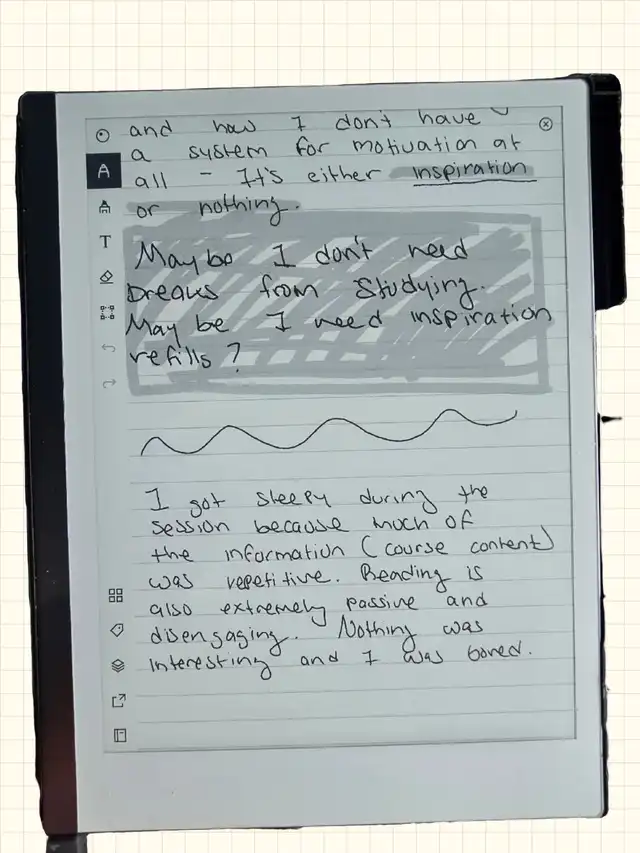 and how I don't have
a system for motivation at
all - It's either inspiration
or nothing.
Maybe I don't need
breaks from studying.
Maybe I need inspiration
refills?
I got sleepy during the
session because much of
the information (course content)
was repetitive. Reading is
also extremely passive and
disengaging. Nothing was
interesting and I was bored.